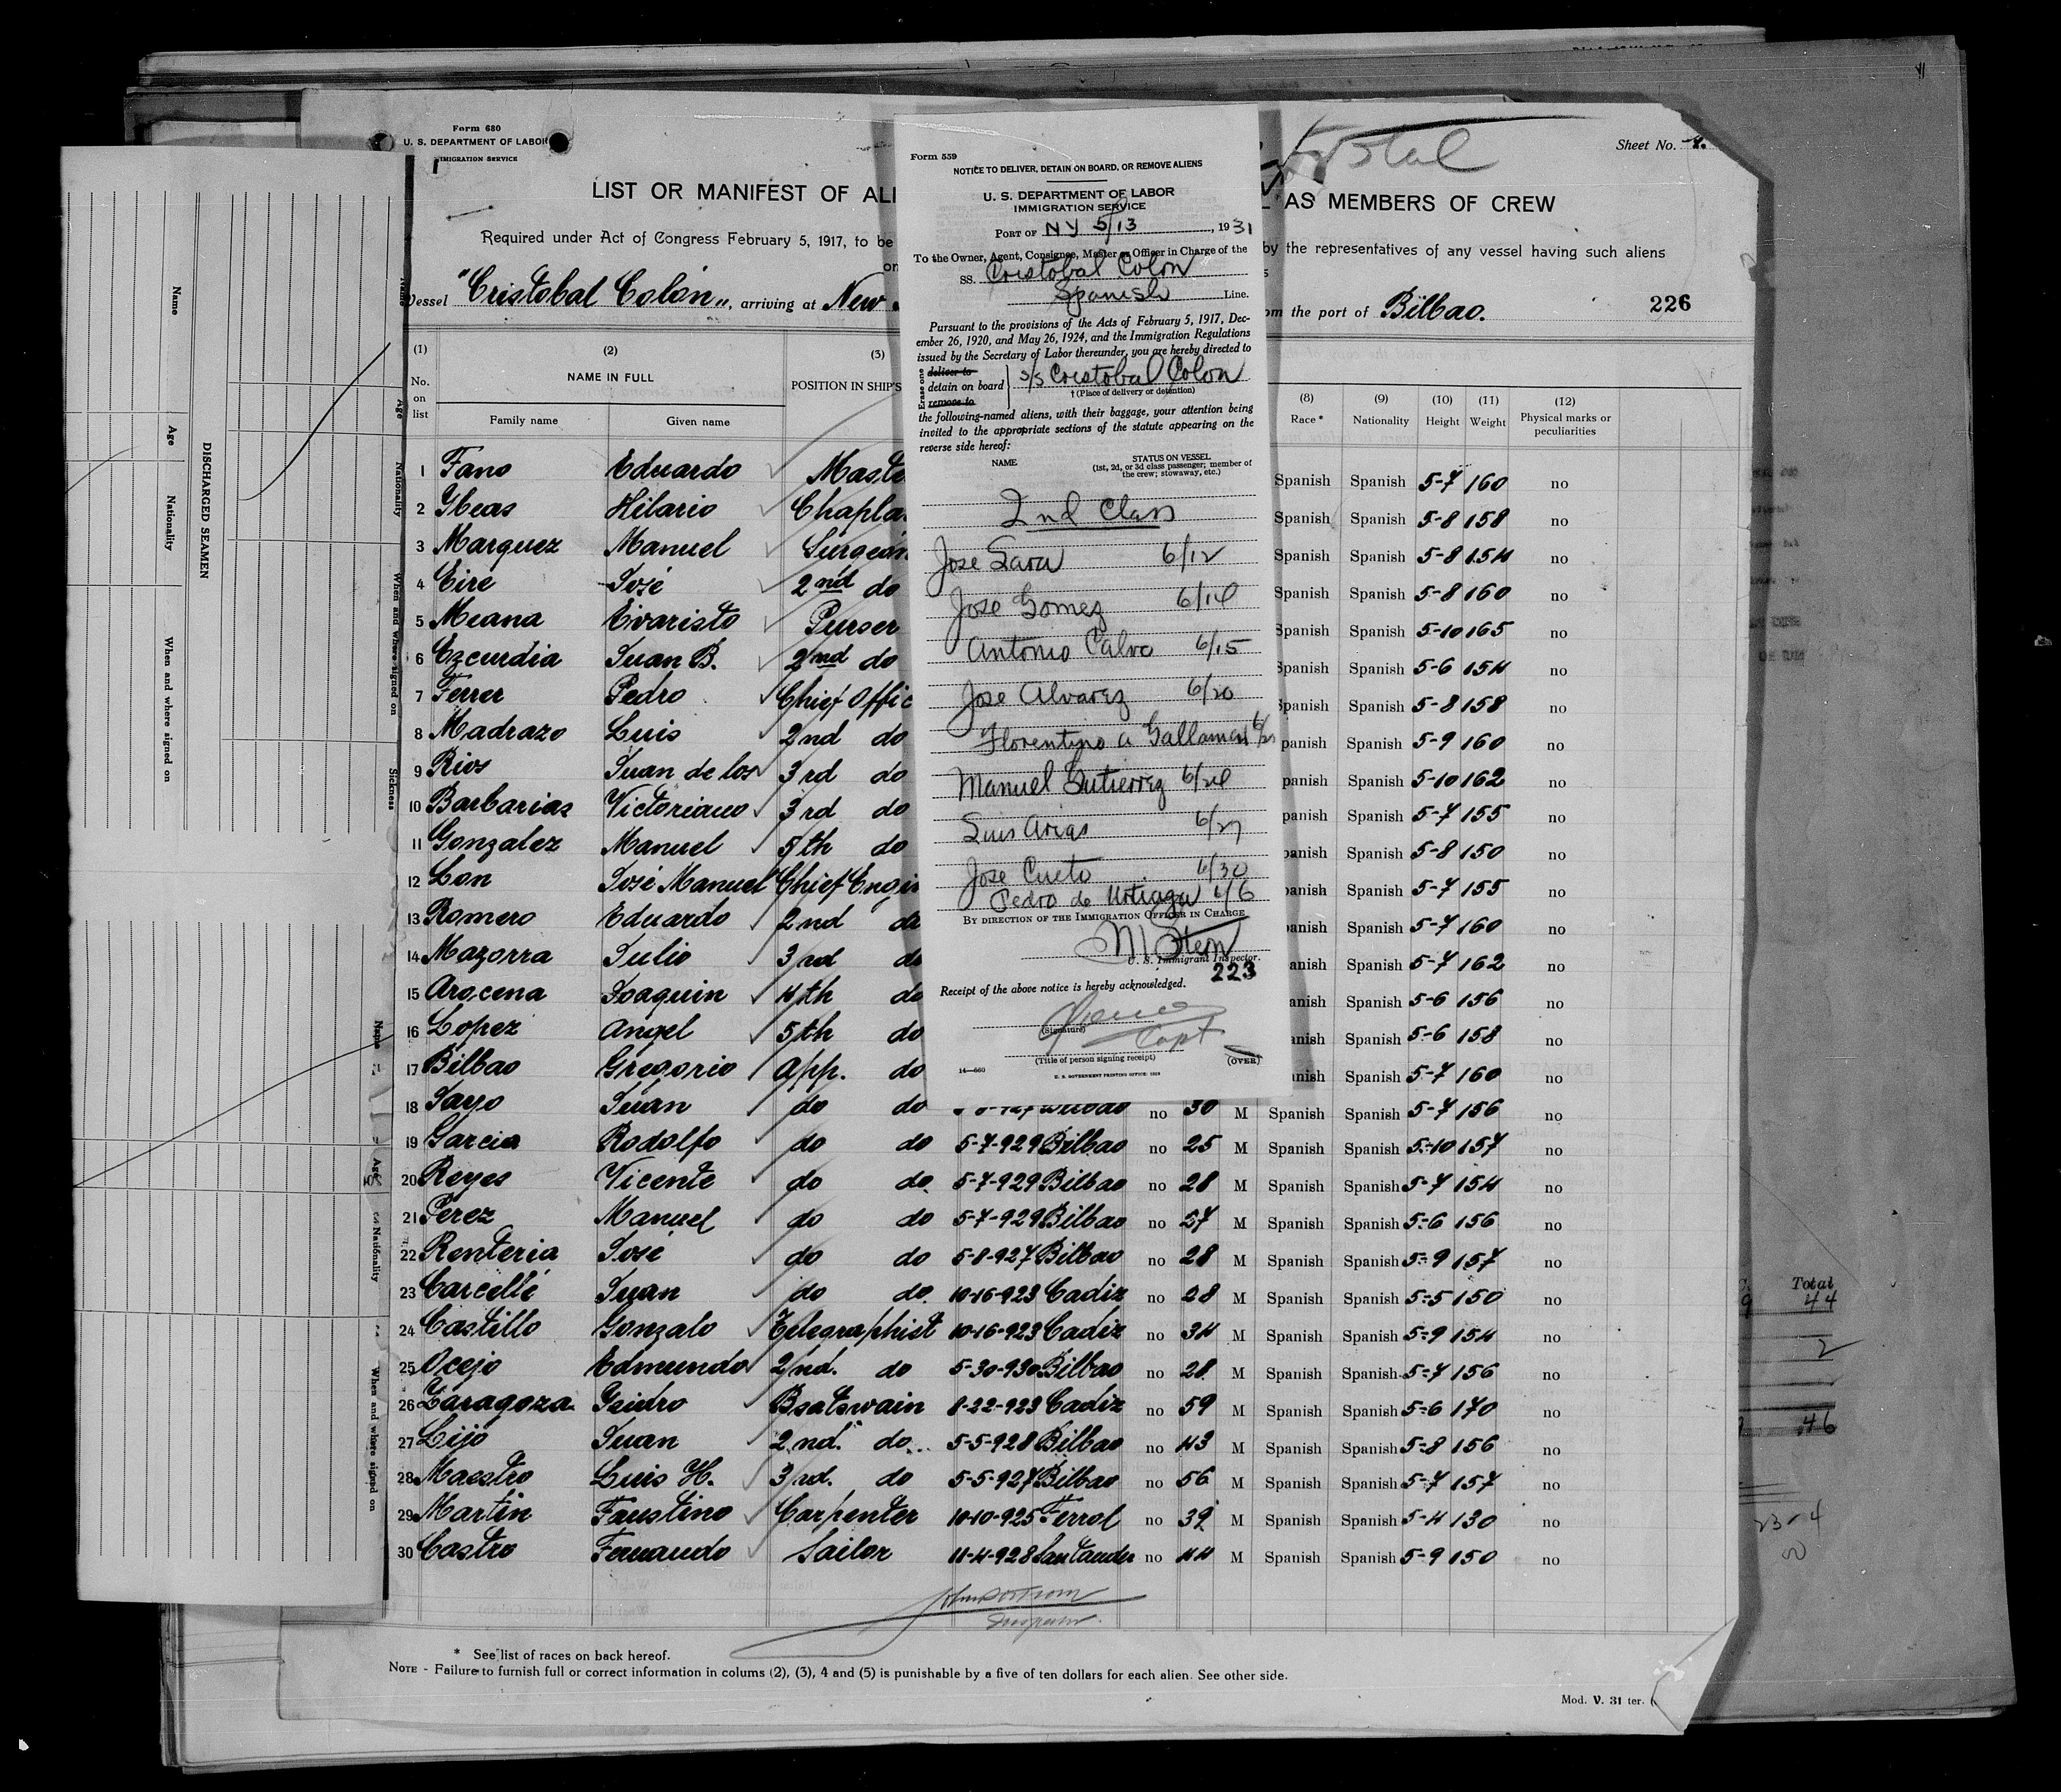 Form 680
U. S. DEPARTMENT OF LABOR
IMMIGRATION SERVICE
Sheet No. 1.
LIST OR MANIFEST OF ALI
L AS MEMBERS OF CREW
Required under Act of Congress February 5, 1917, to be
by the representatives of any vessel having such aliens
on
Vessel "Cristobal Colón", arriving at New
om the port of Bilbao.
226
(1) (2) (3) (8) (9) (10) (11) (12)
No. on list
NAME IN FULL
Family name Given name
POSITION IN SHIP'S
Race* Nationality Height Weight Physical marks or peculiarities
1 Fano Eduardo Maste Spanish Spanish 5-7 160 no
2 Ybeas Hilario Chapla Spanish Spanish 5-8 158 no
3 Marquez Manuel Surgeon Spanish Spanish 5-8 154 no
4 Eire José 2nd do Spanish Spanish 5-8 160 no
5 Meana Evaristo Purser Spanish Spanish 5-10 165 no
6 Ezcurdia Juan B. 2nd do Spanish Spanish 5-6 154 no
7 Ferrer Pedro Chief Offic Spanish Spanish 5-8 158 no
8 Madrazo Luis 2nd do panish Spanish 5-9 160 no
9 Rios Juan de los 3rd do panish Spanish 5-10 162 no
10 Barbarias Victoriano 3rd do panish Spanish 5-7 155 no
11 Gonzalez Manuel 5th do panish Spanish 5-8 150 no
12 Lon José Manuel Chief Engin anish Spanish 5-7 155 no
13 Romero Eduardo 2nd do anish Spanish 5-7 160 no
14 Mazorra Julio 3rd do anish Spanish 5-7 162 no
15 Arocena Joaquin 4th do anish Spanish 5-6 156 no
16 Lopez Angel 5th do anish Spanish 5-6 158 no
17 Bilbao Gregorio App. do anish Spanish 5-7 160 no
18 Sayo Juan do do Bilbao no 30 M Spanish Spanish 5-7 156 no
19 Garcia Rodolfo do do 5-7-929 Bilbao no 25 M Spanish Spanish 5-10 157 no
20 Reyes Vicente do do 5-7-929 Bilbao no 28 M Spanish Spanish 5-7 154 no
21 Perez Manuel do do 5-7-929 Bilbao no 27 M Spanish Spanish 5-6 156 no
22 Renteria José do do 5-8-927 Bilbao no 28 M Spanish Spanish 5-9 157 no
23 Carcellé Juan do do 10-16-923 Cadiz no 28 M Spanish Spanish 5-5 150 no
24 Castillo Gonzalo Telegraphist 10-16-923 Cadiz no 34 M Spanish Spanish 5-9 154 no
25 Ocejo Edmundo 2nd. do 5-30-930 Bilbao no 28 M Spanish Spanish 5-7 156 no
26 Zaragoza Ysidro Boatswain 8-22-923 Cadiz no 59 M Spanish Spanish 5-6 170 no
27 Lijó Juan 2nd. do 5-5-928 Bilbao no 43 M Spanish Spanish 5-8 156 no
28 Maestro Luis H. 3rd. do 5-5-927 Bilbao no 56 M Spanish Spanish 5-7 157 no
29 Martin Faustino Carpenter 10-10-925 Ferrol no 39 M Spanish Spanish 5-4 130 no
30 Castro Fernando Sailor 11-4-928 Santander no 44 M Spanish Spanish 5-9 150 no
* See list of races on back hereof.
NOTE - Failure to furnish full or correct information in colums (2), (3), 4 and (5) is punishable by a five of ten dollars for each alien. See other side.
Mod. V. 31 ter.
Form 559
NOTICE TO DELIVER, DETAIN ON BOARD, OR REMOVE ALIENS
U. S. DEPARTMENT OF LABOR
IMMIGRATION SERVICE
PORT OF NY 5/13, 1931
To the Owner, Agent, Consignee, Master or Officer in Charge of the
SS. Cristobal Colon
Spanish Line.
Pursuant to the provisions of the Acts of February 5, 1917, Dec-
ember 26, 1920, and May 26, 1924, and the Immigration Regulations
issued by the Secretary of Labor thereunder, you are hereby directed to
Erase one
deliver to
detain on board
remove to
s/s Cristobal Colon
† (Place of delivery or detention)
the following-named aliens, with their baggage, your attention being
invited to the appropriate sections of the statute appearing on the
reverse side hereof:
NAME
STATUS ON VESSEL
(1st, 2d, or 3d class passenger; member of
the crew; stowaway, etc.)
2nd Class
Jose Lara 6/12
Jose Gomez 6/14
Antonio Calvo 6/15
Jose Alvarez 6/20
Florentino a
Manuel Gutierrez 6/24
Luis Arias 6/27
Jose Cueto 6/30
Pedro de 6/6
BY DIRECTION OF THE IMMIGRATION OFFICER IN CHARGE
M Stern
U. S. Immigrant Inspector.
223
Receipt of the above notice is hereby acknowledged.
(Signature)
Capt
(Title of person signing receipt)
(OVER)
14—660
U. S. GOVERNMENT PRINTING OFFICE: 1929
DISCHARGED SEAMEN
Name
Age
Nationality
When and where signed on
Name
Age
Nationality
When and where signed on
Sickness
Name
Age
Nationality
When and where signed on
Total
44
2
46